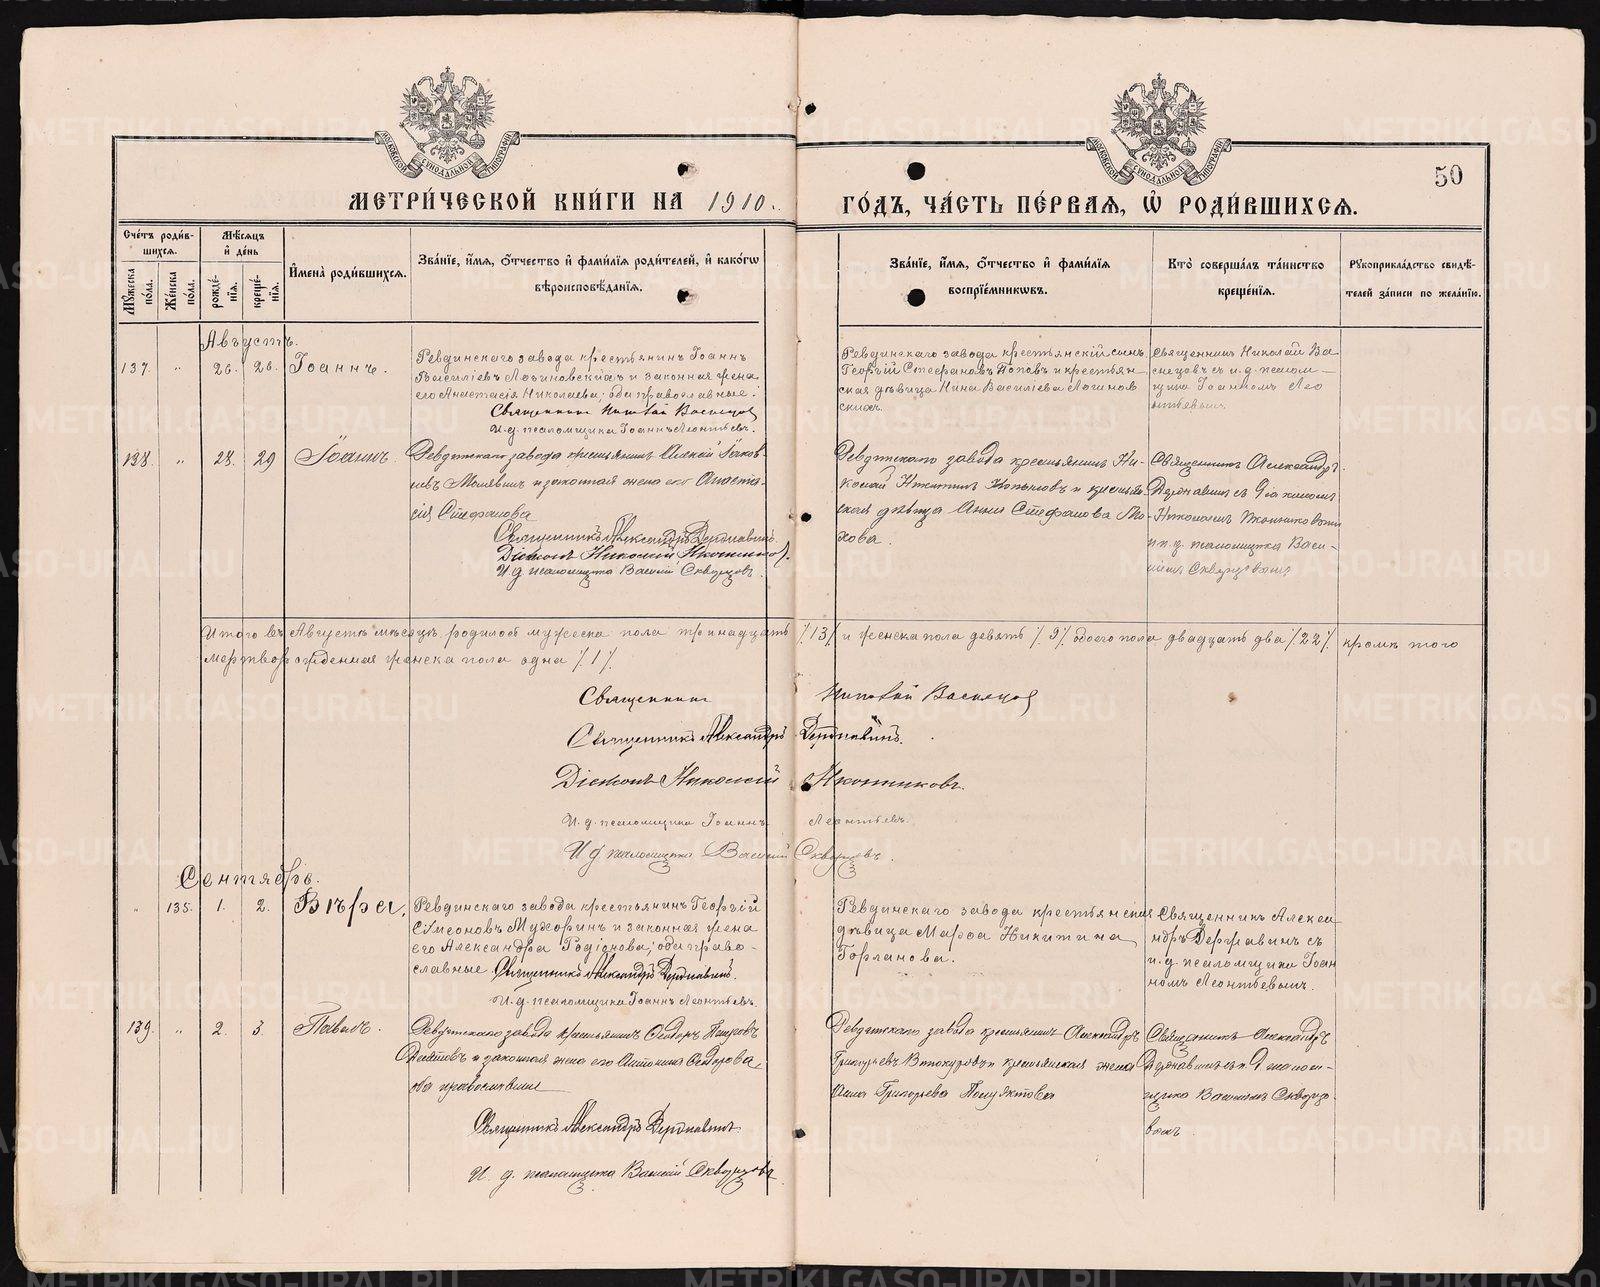 МЕТРИ́ЧЕСКОЙ КНИ́ГИ НА 1910. ГО́ДЪ, ЧА́СТЬ ПЕ́РВАЯ, Ѡ҆ РОДИ́ВШИХСЯ.
50
МОСКОВСКОЙ СѴНОДАЛЬНОЙ ТИПОГРАФІИ
МОСКОВСКОЙ СѴНОДАЛЬНОЙ ТИПОГРАФІИ
Сче́тъ роди́вшихся.
Мꙋ́жеска по́ла.
Же́нска по́ла.
Мѣ́сяцъ и҆ де́нь
рожде́нїя.
креще́нїя.
И҆мена̀ роди́вшихся.
Зва́нїе, и҆́мя, ѻ҆́тчество и҆ фами́лїя роди́телей, и҆ како́гѡ
вѣроисповѣ́данїя.
Зва́нїе, и҆́мя, ѻ҆́тчество и҆ фами́лїя
воспрїе́мникѡвъ.
Кто̀ соверша́лъ та́инство
креще́нїя.
Рꙋкоприкла́дство свидѣ́-
телей за́писи по жела́нїю.
Августъ.
137. " 26. 26. Іоаннъ.
Ревдинскаго завода крестьянинъ Іоаннъ
Василіевъ Логиновскихъ и законная жена
его Анастасія Николаева; оба православные.
Священникъ Николай Васнецовъ
И.д. псаломщика Іоаннъ Леонтьевъ.
Ревдинскаго завода крестьянскій сынъ
Георгій Стефановъ Поповъ и крестьян
ская дѣвица Нина Василіева Логинов
скихъ.
Священникъ Николай Ва
снецовъ съ и.д. псалом-
щика Іоанномъ Лео
нтьевымъ.
138. " 28. 29 Іоаннъ.
Ревдинскаго завода крестьянинъ Алексій Іаков-
левъ и законная жена его Анаста-
сія Стефанова
Священникъ Александръ Державинъ
Діаконъ Николай Иконниковъ.
И.д. псаломщика Василій Скворцовъ.
Ревдинскаго завода крестьянинъ Ни-
колай Никитинъ и крестьян
ская дѣвица Анна Стефанова Мо-
хова.
Священникъ Александръ
Державинъ съ діакономъ
Николаемъ Иконниковымъ
и и.д. псаломщика Васи-
ліемъ Скворцовымъ
Итого въ Августѣ мѣсяцѣ родилось мужеска пола тринадцать /13/ и женска пола девять /9/ обоего пола двадцать два /22/ кромѣ того
мертворожденная женска пола одна /1/.
Священникъ Николай Васнецовъ
Священникъ Александръ Державинъ.
Діаконъ Николай Иконниковъ.
И.д. псаломщика Іоаннъ Леонтьевъ.
И.д. псаломщика Василій Скворцовъ.
Сентябрь.
" 135. 1. 2. Вѣра.
Ревдинскаго завода крестьянинъ Георгій
Сѵмеоновъ Мухоринъ и законная жена
его Александра Родіонова; оба право-
славные. Священникъ Александръ Державинъ.
И.д. псаломщика Іоаннъ Леонтьевъ.
Ревдинскаго завода крестьянская
дѣвица Марѳа Никитина
Горланова.
Священникъ Алекса-
ндръ Державинъ съ
и.д. псаломщика Іоан
номъ Леонтьевымъ.
139. " 2. 3. Павелъ.
Ревдинскаго завода крестьянинъ Ѳеодоръ Петровъ
и законная жена его Антонина Ѳеодорова,
оба православные
Священникъ Александръ Державинъ.
И.д. псаломщика Василій Скворцовъ.
Ревдинскаго завода крестьянинъ Александръ
Григорьевъ Винокуровъ и крестьянская жена
Анна Григорьева Полуяктова
Священникъ Александръ
Державинъ съ и.д. псалом-
щика Василіемъ Скворцо-
вымъ.
METRIKI.GASO-URAL.RU